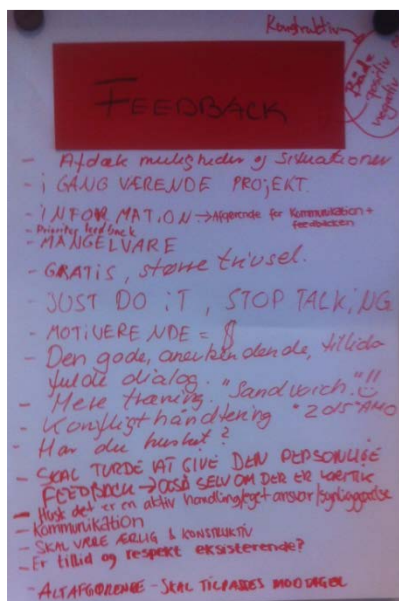 Konstruktiv
Både
positiv
negativ
FEEDBACK
- Afdæk muligheder og situationer
- i GANG VÆRENDE PROJEKT.
- INFORMATION → Afgørende for Kommunikation +
feedbacken
- Prioriter feedback
- MANGELVARE
- GRATIS, større trivsel.
- JUST DO iT, STOP TALKiNG
- MOTIVERENDE =
- Den gode, anerkendende, tillids
fulde dialog. "Sandwich."!!
- Mere træning.
- Konflikthåndtering
- Har du husket?
- SKAL TURDE AT GIVE DEN PERSONLIGE
FEEDBACK → OGSÅ SELV OM DER ER KRITIK
- Husk det er en aktiv handling/eget ansvar/synliggørelse
- Kommunikation
- SKAL VÆRE ÆRLIG & KONSTRUKTIV
- Er tillid og respekt eksisterende?
- ALTAFGØRENDE - SKAL TILPASSES MODTAGER